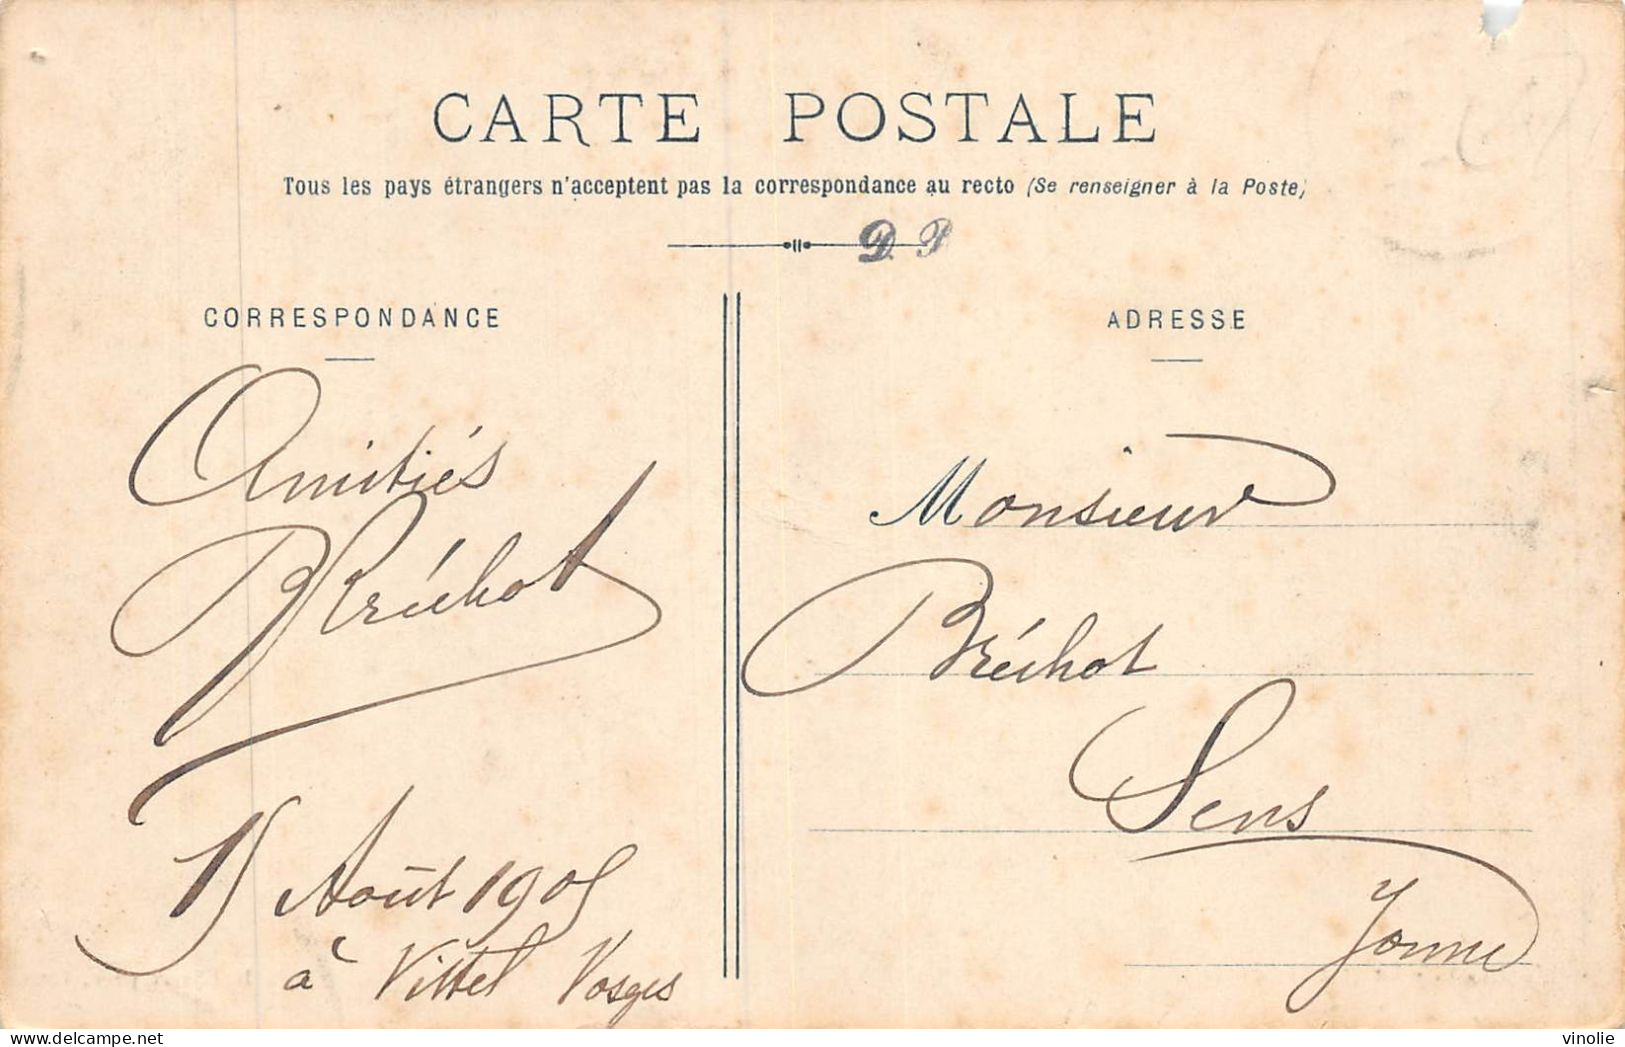 CARTE POSTALE
Tous les pays étrangers n'acceptent pas la correspondance au recto (Se renseigner à la Poste)
D. P
CORRESPONDANCE
Amitiés
Bréchot
15 Août 1905
à Vittel Vosges
ADRESSE
Monsieur
Bréchot
Sens
Yonne
vinolie